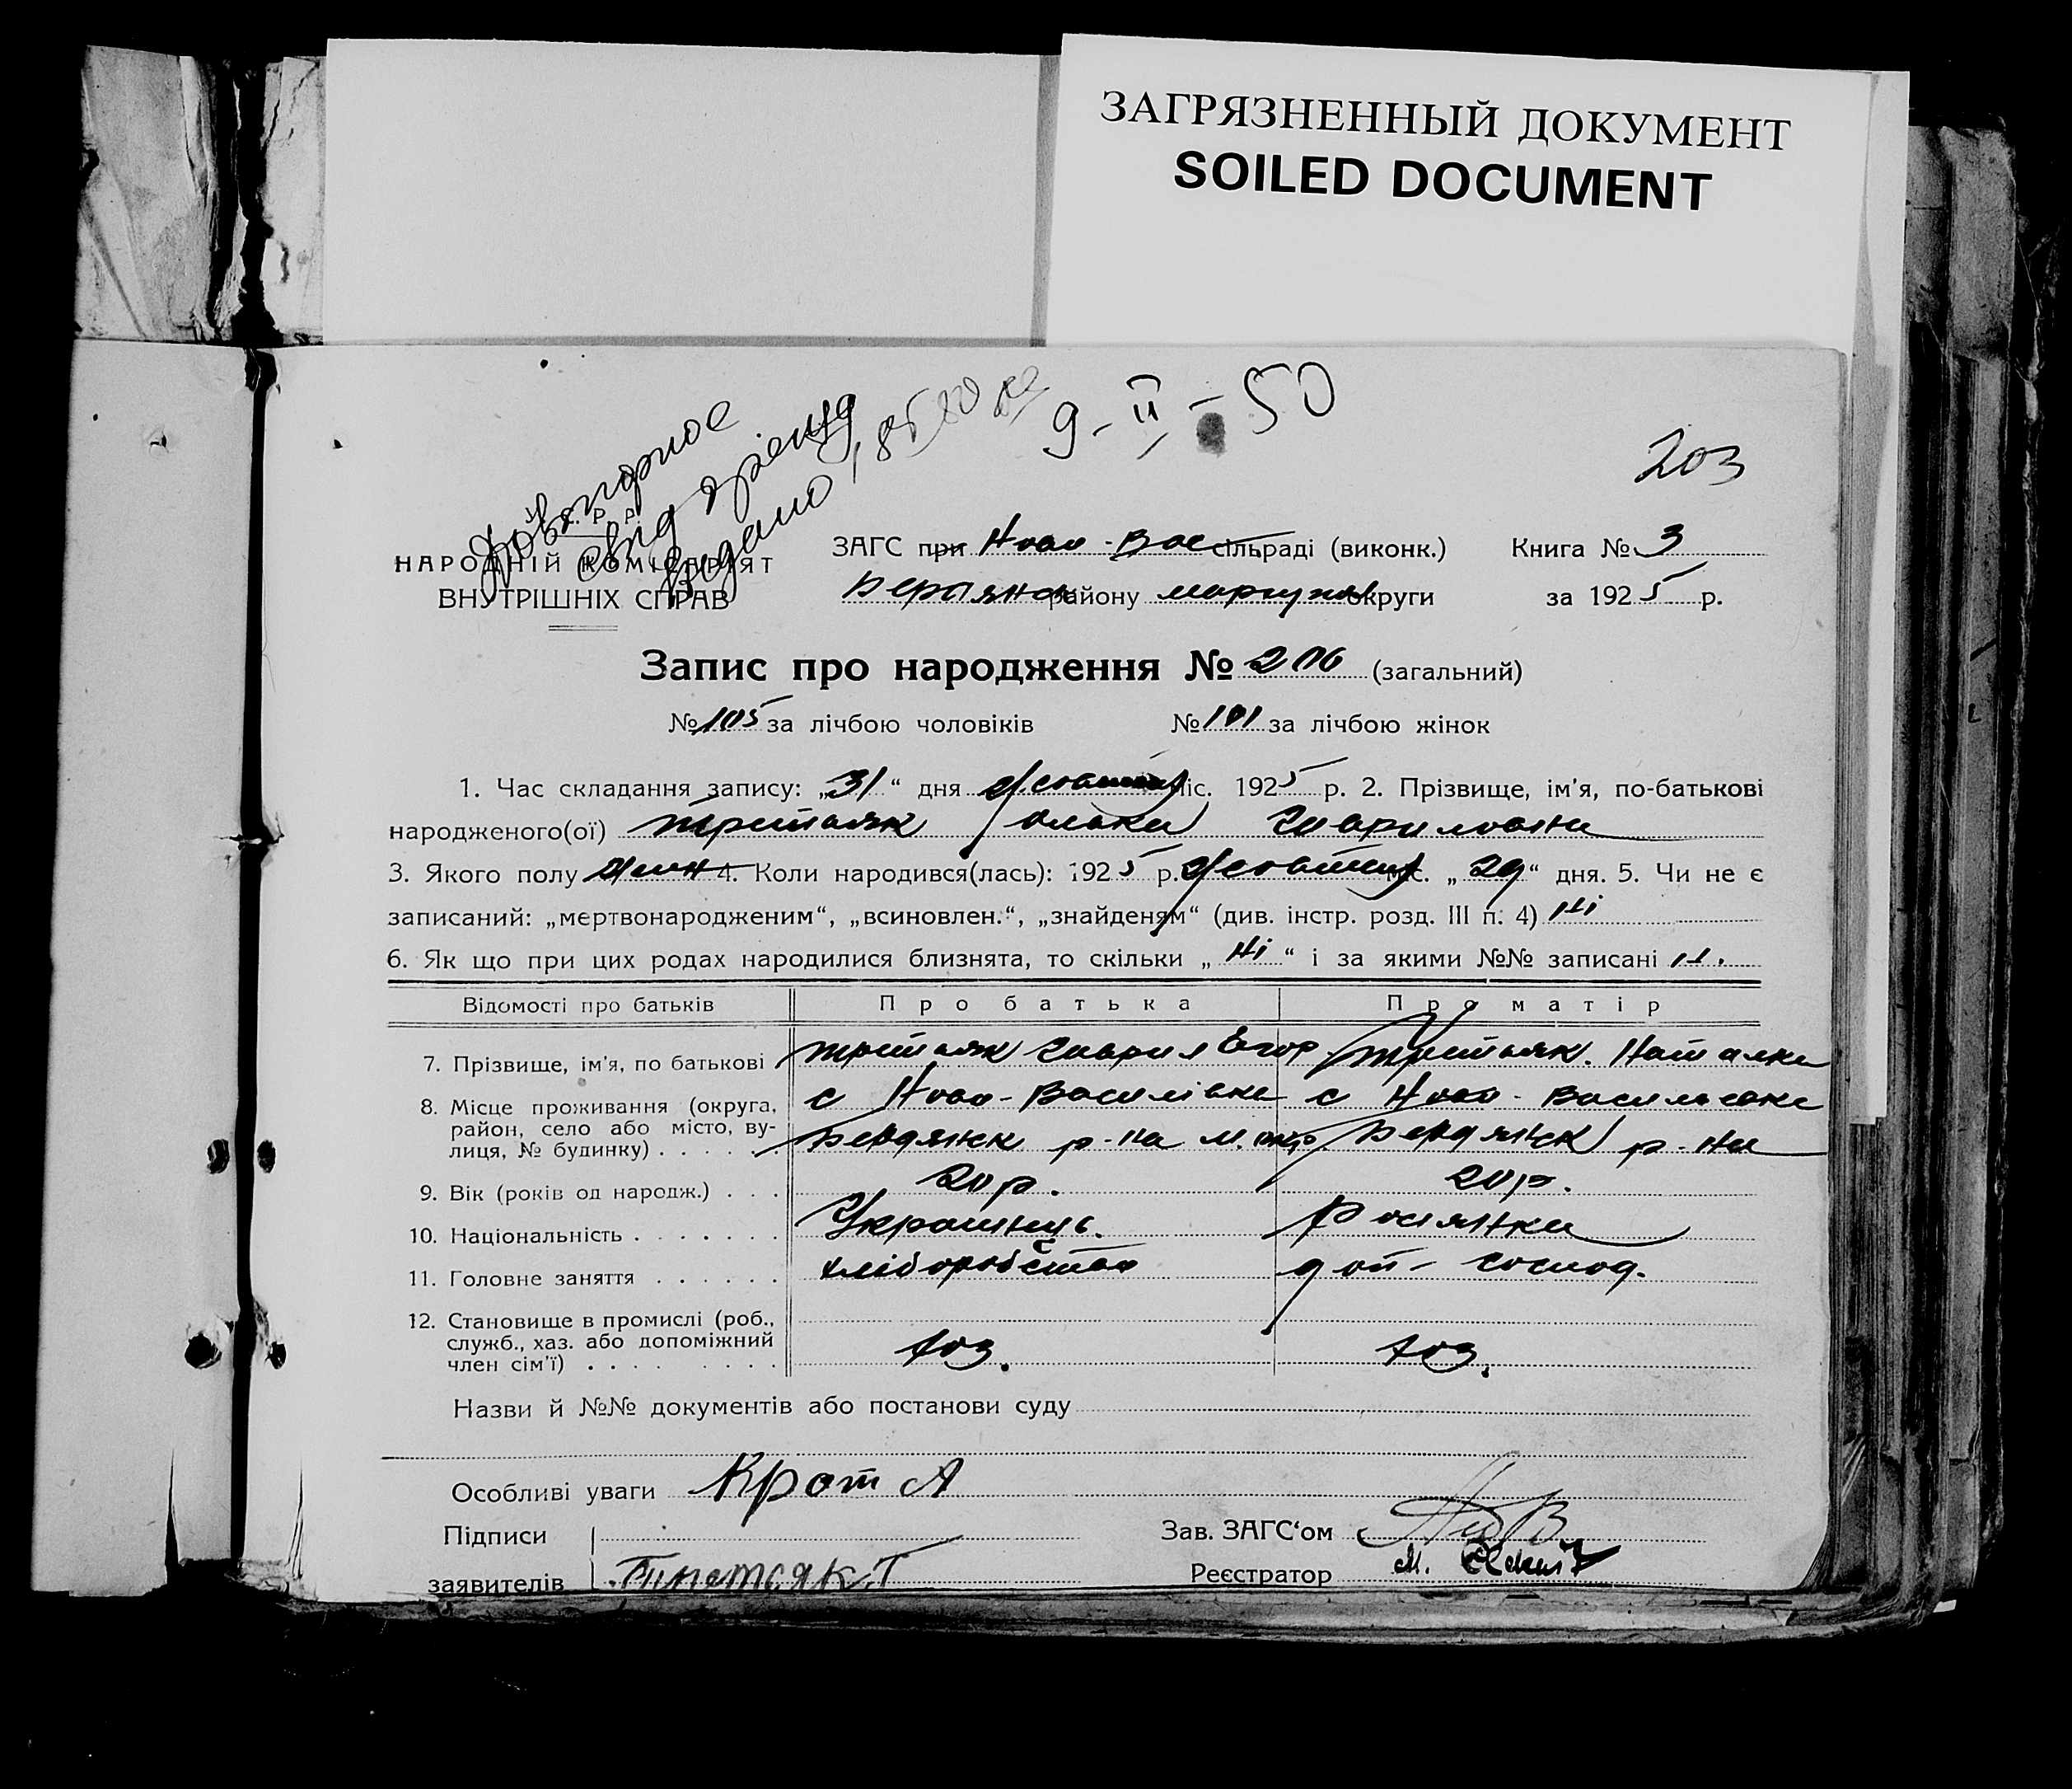 ЗАГРЯЗНЕННЫЙ ДОКУМЕНТ
SOILED DOCUMENT
9-II-50
203
Р. Р.
НАРОДНІЙ КОМІСАРІЯТ
ВНУТРІШНІХ СПРАВ
ЗАГС при Ново-Вас сільраді (виконк.) Книга № 3
району округи за 1925 р.
Запис про народження № 206 (загальний)
№ 105 за лічбою чоловіків № 101 за лічбою жінок
1. Час складання запису: „31“ дня міс. 1925 р. 2. Прізвище, ім'я, по-батькові
народженого(ої) Третьяк
3. Якого полу жін 4. Коли народився(лась): 1925 р. „29“ дня. 5. Чи не є
записаний: „мертвонародженим“, „всиновлен.“, „знайденям“ (див. інстр. розд. III п. 4) Ні
6. Як що при цих родах народилися близнята, то скільки „Ні“ і за якими №№ записані
Відомості про батьків Про батька Про матір
7. Прізвище, ім'я, по батькові Третьяк Гаврил Егор. Третьяк. Наталка
8. Місце проживання (округа, с Ново-Василівка с Ново-
район, село або місто, ву-
лиця, № будинку) Бердянськ р-на Бердянськ р-на
9. Вік (років од народж.) 20 р. 20 р.
10. Національність Українець. Росіянка
11. Головне заняття хліборобство господ.
12. Становище в промислі (роб.,
служб., хаз. або допоміжний
член сім'ї) хоз. хоз.
Назви й №№ документів або постанови суду
Особливі уваги Крот А
Підписи Зав. ЗАГС‘ом
заявителів Третяк Г Реєстратор М.